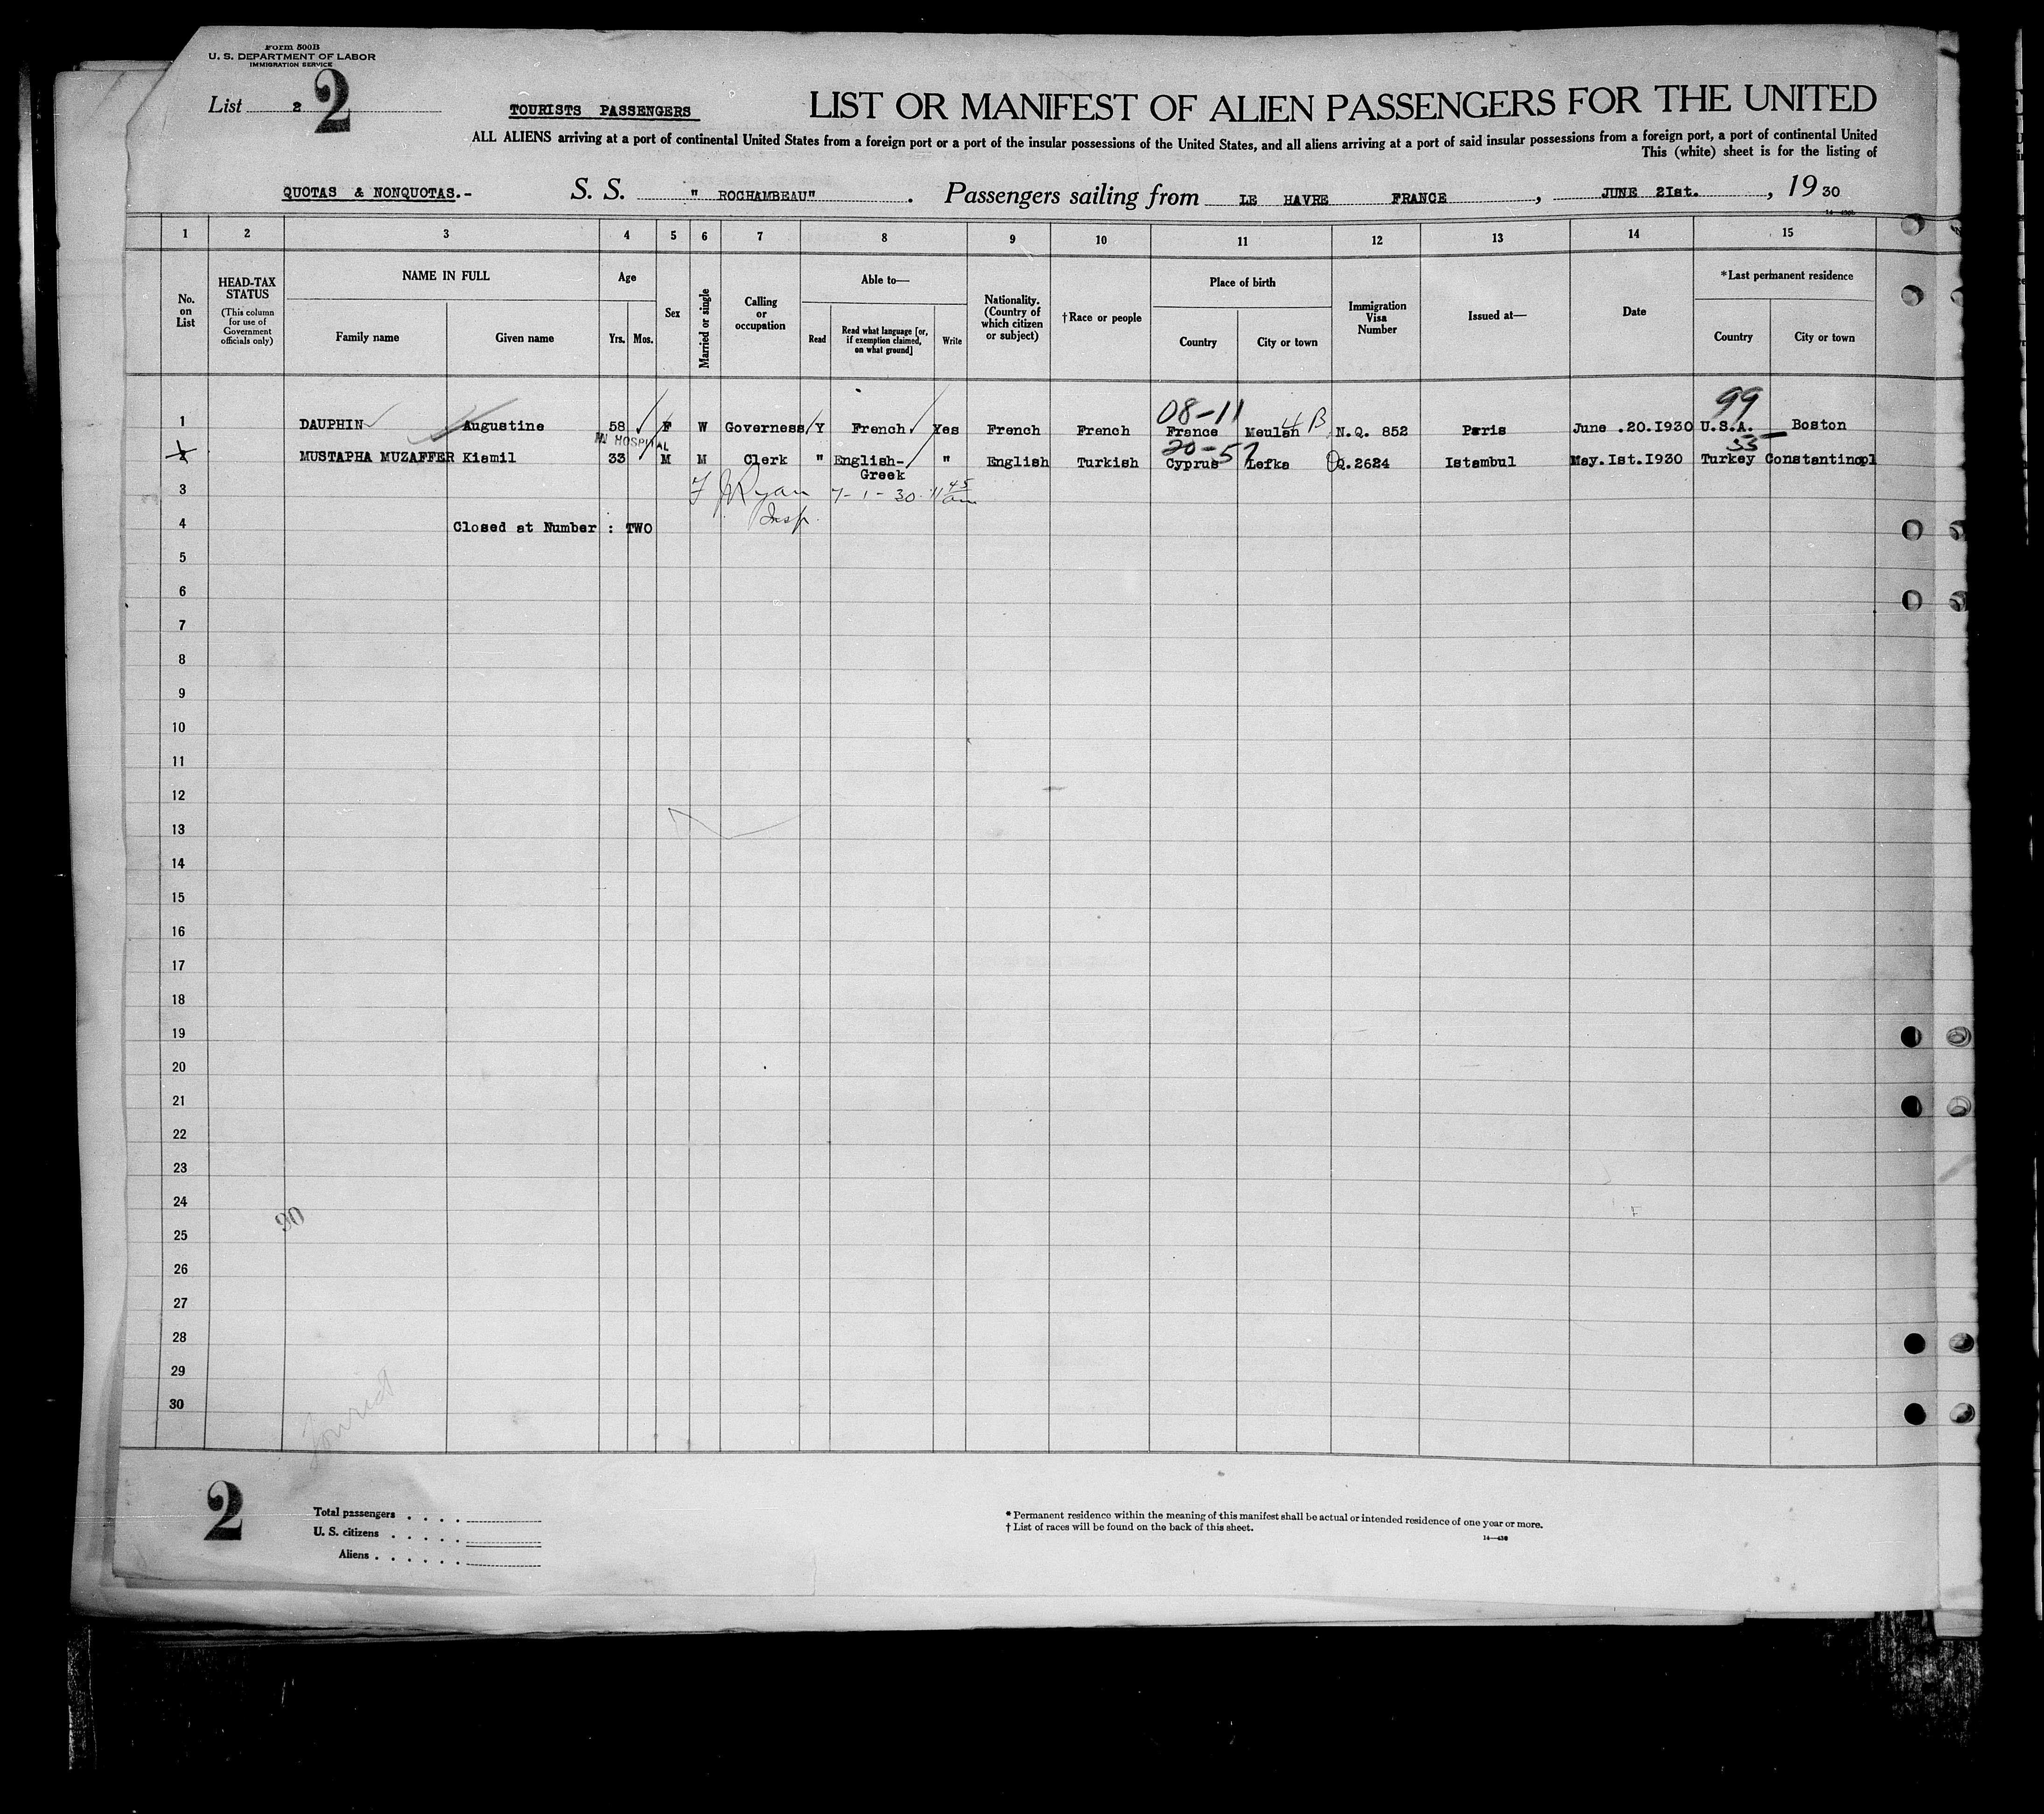 Form 500B
U. S. DEPARTMENT OF LABOR
IMMIGRATION SERVICE
List 2 2
TOURISTS PASSENGERS
LIST OR MANIFEST OF ALIEN PASSENGERS FOR THE UNITED
ALL ALIENS arriving at a port of continental United States from a foreign port or a port of the insular possessions of the United States, and all aliens arriving at a port of said insular possessions from a foreign port, a port of continental United
This (white) sheet is for the listing of
QUOTAS & NONQUOTAS.- S. S. " ROCHAMBEAU" . Passengers sailing from LE HAVRE FRANCE , JUNE 2Ist. , 19 30
1 2 3 4 5 6 7 8 9 10 11 12 13 14 15
No. on List
HEAD-TAX STATUS
(This column for use of Government officials only)
NAME IN FULL
Family name Given name
Age
Yrs. Mos.
Sex
Married or single
Calling or occupation
Able to—
Read
Read what language [or, if exemption claimed, on what ground]
Write
Nationality. (Country of which citizen or subject)
†Race or people
Place of birth
Country City or town
Immigration Visa Number
Issued at—
Date
*Last permanent residence
Country City or town
08-11 4 B 99
1 DAUPHIN Augustine 58 F W Governess Y French Yes French French France Meulan N.Q. 852 Paris June .20.I930 U.S.A. Boston
IN HOSPITAL 20-57 55
2 MUSTAPHA MUZAFFER Kiamil 33 M M Clerk " English- " English Turkish Cyprus Lefka Q.2624 Istambul May.Ist.I930 Turkey Constantinopl
Greek
3 F J Ryan 7-1-30 11 45 am
Insp.
4 Closed at Number : TWO
5
6
7
8
9
10
11
12
13
14
15
16
17
18
19
20
21
22
23
24
30
25
26
27
28
29
30
2
Total passengers . . . .
U. S. citizens . . . . .
Aliens . . . . . .
* Permanent residence within the meaning of this manifest shall be actual or intended residence of one year or more.
† List of races will be found on the back of this sheet.
14—430